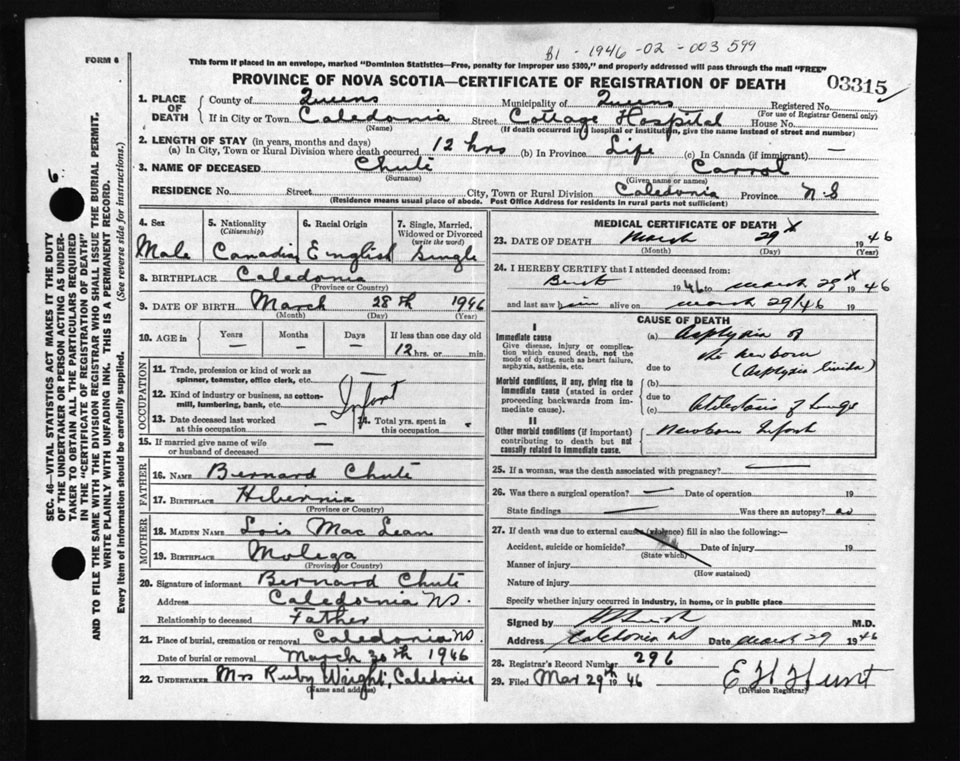 B1 - 1946 - 02 - 003 599
FORM 6
This form if placed in an envelope, marked "Dominion Statistics—Free, penalty for improper use $300," and properly addressed will pass through the mail "FREE"
PROVINCE OF NOVA SCOTIA—CERTIFICATE OF REGISTRATION OF DEATH
03315
1. PLACE OF DEATH
County of Queens Municipality of Queens Registered No.
(For use of Registrar General only)
If in City or Town Caledonia Street Cottage Hospital House No.
(Name) (If death occurred in a hospital or institution, give the name instead of street and number)
2. LENGTH OF STAY (in years, months and days)
(a) In City, Town or Rural Division where death occurred 12 hrs (b) In Province Life (c) In Canada (if immigrant) —
3. NAME OF DECEASED Chute Carrol
(Surname) (Given name or names)
RESIDENCE No. Street City, Town or Rural Division Caledonia Province N.S
(Residence means usual place of abode. Post Office Address for residents in rural parts not sufficient)
4. Sex Male
5. Nationality (Citizenship) Canadian
6. Racial Origin English
7. Single, Married, Widowed or Divorced (write the word) Single
8. BIRTHPLACE Caledonia
(Province or Country)
9. DATE OF BIRTH March 28th 1946
(Month) (Day) (Year)
10. AGE in Years Months Days If less than one day old
— — — 12 hrs. or min.
OCCUPATION
11. Trade, profession or kind of work as spinner, teamster, office clerk, etc. —
12. Kind of industry or business, as cotton-mill, lumbering, bank, etc. Infant
13. Date deceased last worked at this occupation —
14. Total yrs. spent in this occupation —
15. If married give name of wife or husband of deceased —
FATHER
16. NAME Bernard Chute
17. BIRTHPLACE Hibernia
(Province or Country)
MOTHER
18. MAIDEN NAME Lois MacLean
19. BIRTHPLACE Molega
(Province or Country)
20. Signature of informant Bernard Chute
Address Caledonia NS.
Relationship to deceased Father
21. Place of burial, cremation or removal Caledonia NS.
Date of burial or removal March 30th 1946
22. UNDERTAKER Mrs Ruby Wright, Caledonia
(Name and address)
MEDICAL CERTIFICATE OF DEATH X
23. DATE OF DEATH March 29 1946
(Month) (Day) (Year)
24. I HEREBY CERTIFY that I attended deceased from:
Birth 1946 to March 29 X 1946
and last saw him alive on March 29/46 19
CAUSE OF DEATH
I
Immediate cause
Give disease, injury or complication which caused death, not the mode of dying, such as heart failure, asphyxia, asthenia, etc.
(a) Asphyxia of
the newborn
due to (Asphyxia livida)
Morbid conditions, if any, giving rise to immediate cause (stated in order proceeding backwards from immediate cause).
(b)
due to
(c) Atelectasis of Lungs
II
Other morbid conditions (if important) contributing to death but not causally related to immediate cause.
Newborn Infant
25. If a woman, was the death associated with pregnancy? —
26. Was there a surgical operation? — Date of operation 19
State findings — Was there an autopsy? no
27. If death was due to external causes (violence) fill in also the following:—
Accident, suicide or homicide? Date of injury 19
(State which)
Manner of injury
(How sustained)
Nature of injury
Specify whether injury occurred in industry, in home, or in public place
Signed by M.D.
Address Caledonia NS Date March 29 1946
28. Registrar's Record Number 296
29. Filed Mar 29th 1946 E H Hunt
(Division Registrar)
SEC. 46—VITAL STATISTICS ACT MAKES IT THE DUTY
OF THE UNDERTAKER OR PERSON ACTING AS UNDER-
TAKER TO OBTAIN ALL THE PARTICULARS REQUIRED
IN THE "CERTIFICATE OF REGISTRATION OF DEATH"
AND TO FILE THE SAME WITH THE DIVISION REGISTRAR WHO SHALL ISSUE THE BURIAL PERMIT.
WRITE PLAINLY WITH UNFADING INK. THIS IS A PERMANENT RECORD.
Every item of information should be carefully supplied. (See reverse side for instructions.)